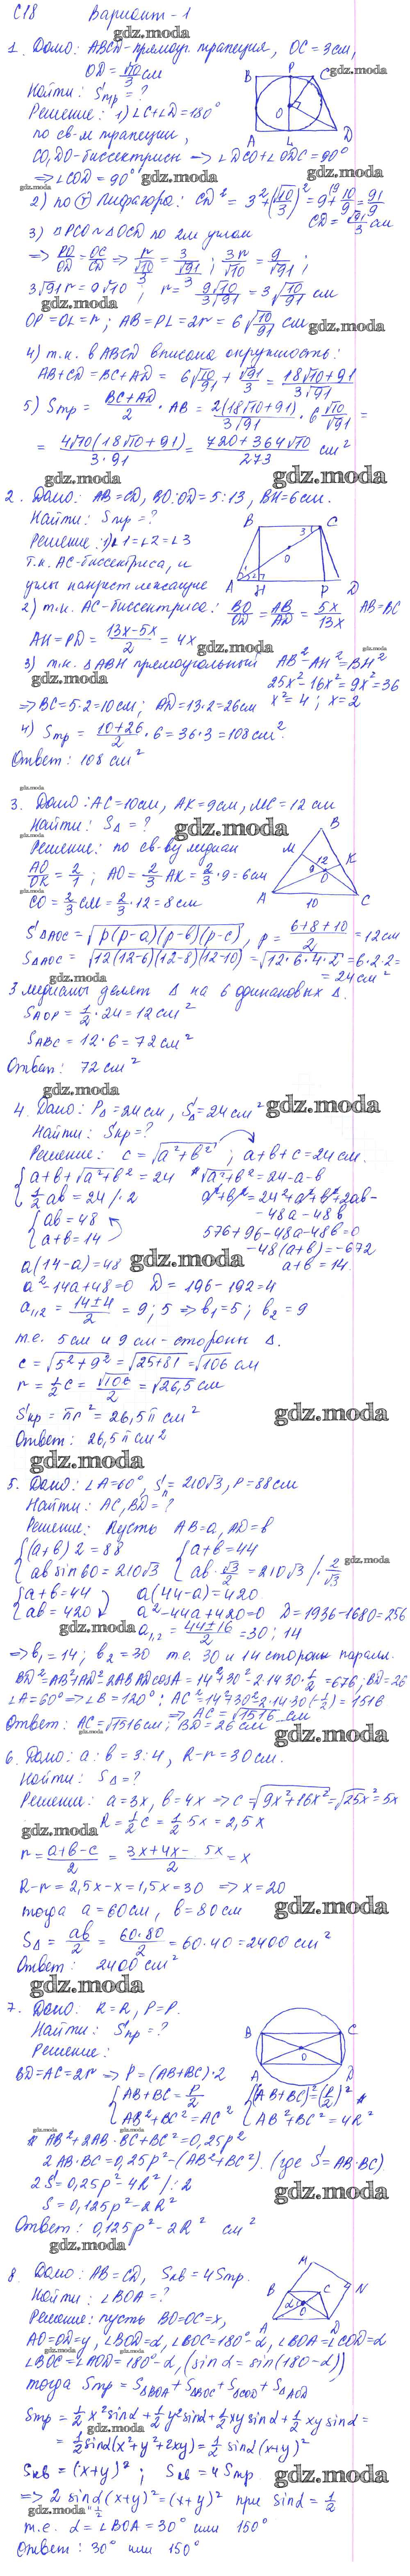 С18 Вариант-1
gdz.moda
1. Дано: ABCD-прямоуг. трапеция, OC = 3 см,
OD = √10/3 см
gdz.moda
Найти: Sтр = ?
Решение: 1) ∠C+∠D = 180°
по св-м трапеции,
CO, DO-биссектрисы ⇒ ∠DCO+∠ODC = 90°
⇒ ∠COD = 90°
gdz.moda
2) по Т Пифагора: CD² = 3²+(√10/3)² = 9+10/9 = 91/9
CD = √91/3 см
3) △PCO ~ △OCD по 2м углам
⇒ PO/OD = OC/CD ⇒ r/(√10/3) = 3/(√91/3); 3r/√10 = 9/√91;
3√91 r = 9√10; r = 9√10/3√91 = 3√(10/91) см
gdz.moda
OP = OL = r; AB = PL = 2r = 6√(10/91) см
gdz.moda
4) т.к. в ABCD вписана окружность:
AB+CD = BC+AD = 6√(10/91) + √91/3 = (18√10+91)/3√91
5) Sтр = (BC+AD)/2 · AB = 2(18√10+91)/3√91 · 6√10/√91 =
= 4√10(18√10+91)/3·91 = (720+364√10)/273 см²
gdz.moda
gdz.moda
2. Дано: AB = CD, BO:OD = 5:13, BH = 6 см.
Найти: Sтр = ?
Решение: 1) ∠1 = ∠2 = ∠3
т.к. AC-биссектриса, и
углы накрест лежащие
2) т.к. AC-биссектриса: BO/OD = AB/AD = 5x/13x AB = BC
AH = PD = (13x-5x)/2 = 4x
gdz.moda
3) т.к. △ABH прямоугольный AB²-AH² = BH²
gdz.moda
25x²-16x² = 9x² = 36
⇒ BC = 5·2 = 10 см; AD = 13·2 = 26 см x² = 4; x = 2
4) Sтр = (10+26)/2 · 6 = 36·3 = 108 см².
Ответ: 108 см²
gdz.moda
3. Дано: AC = 10 см, AK = 9 см, MC = 12 см
Найти: S△ = ?
gdz.moda
Решение: по св-ву медиан
AO/OK = 2/1; AO = 2/3 AK = 2/3 · 9 = 6 см
CO = 2/3 CM = 2/3 · 12 = 8 см
S△AOC = √(p(p-a)(p-b)(p-c)), p = (6+8+10)/2 = 12 см
S△AOC = √(12(12-6)(12-8)(12-10)) = √(12·6·4·2) = 6·2·2 =
= 24 см²
gdz.moda
3 медианы делят △ на 6 одинаковых △.
S△OP = 1/2 · 24 = 12 см²
SABC = 12·6 = 72 см²
Ответ: 72 см²
gdz.moda
4. Дано: P△ = 24 см, S△ = 24 см²
gdz.moda
Найти: Sкр = ?
Решение: c = √(a²+b²); a+b+c = 24 см.
{a+b+√(a²+b²) = 24 * √(a²+b²) = 24-a-b
{1/2 ab = 24 /·2 a²+b² = 24²+a²+b²+2ab-
-48a-48b
{ab = 48 576+96-48a-48b = 0
{a+b = 14 -48(a+b) = -672
a(14-a) = 48 a+b = 14.
gdz.moda
a²-14a+48 = 0 D = 196-192 = 4
a1,2 = (14±4)/2 = 9; 5 ⇒ b1 = 5; b2 = 9
т.е. 5 см и 9 см-стороны △.
c = √(5²+9²) = √(25+81) = √106 см
r = 1/2 c = √106/2 = √26,5 см
Sкр = πr² = 26,5π см²
gdz.moda
Ответ: 26,5π см²
gdz.moda
5. Дано: ∠A = 60°, Sп = 210√3, P = 88 см
Найти: AC, BD = ?
Решение: Пусть AB = a, AD = b
{(a+b)2 = 88 {a+b = 44
{ab sin 60 = 210√3 {ab · √3/2 = 210√3 /· 2/√3
gdz.moda
{a+b = 44 a(44-a) = 420
{ab = 420 a²-44a+420 = 0 D = 1936-1680 = 256
gdz.moda
a1,2 = (44±16)/2 = 30; 14
⇒ b1 = 14; b2 = 30 т.е. 30 и 14 стороны паралл.
BD² = AB²+AD²-2AB·AD cos A = 14²+30²-2·14·30·1/2 = 676; BD = 26
∠A = 60° ⇒ ∠B = 120°; AC² = 14²+30²-2·14·30(-1/2) = 1516
⇒ AC = √1516 см
Ответ: AC = √1516 см; BD = 26 см
gdz.moda
gdz.moda
6. Дано: a:b = 3:4, R-r = 30 см.
Найти: S△ = ?
Решение: a = 3x, b = 4x ⇒ c = √(9x²+16x²) = √25x² = 5x
gdz.moda
R = 1/2 c = 1/2 · 5x = 2,5x
r = (a+b-c)/2 = (3x+4x-5x)/2 = x
R-r = 2,5x-x = 1,5x = 30 ⇒ x = 20
тогда a = 60 см, b = 80 см
gdz.moda
S△ = ab/2 = 60·80/2 = 60·40 = 2400 см²
Ответ: 2400 см²
gdz.moda
7. Дано: R = R, P = P.
Найти: Sпр = ?
Решение:
BD = AC = 2r ⇒ P = (AB+BC)·2
gdz.moda
{AB+BC = P/2 {(AB+BC)² = (P/2)² *
{AB²+BC² = AC² {AB²+BC² = 4R²
gdz.moda
* AB²+2AB·BC+BC² = 0,25p²
2AB·BC = 0,25p²-(AB²+BC²). (где S = AB·BC)
gdz.moda
2S = 0,25p²-4R² /:2
gdz.moda
S = 0,125p²-2R²
Ответ: 0,125p²-2R² см²
gdz.moda
8. Дано: AB = CD, Sкв = 4Sтр.
Найти: ∠BOA = ?
gdz.moda
Решение: пусть BO = OC = x,
AO = OD = y, ∠BOD = α, ∠BOC = 180°-α, ∠BOA = ∠COD = α
gdz.moda
gdz.moda
∠BOC = ∠AOD = 180°-α, (sin α = sin(180-α))
тогда Sтр = S△BOA + S△BOC + S△COD + S△AOD
Sтр = 1/2 x² sin α + 1/2 y² sin α + 1/2 xy sin α + 1/2 xy sin α =
gdz.moda
= 1/2 sin α(x²+y²+2xy) = 1/2 sin α (x+y)²
Sкв = (x+y)²; Sкв = 4Sтр
gdz.moda
⇒ 2 sin α(x+y)² = (x+y)² при sin α = 1/2
gdz.moda
т.е. α = ∠BOA = 30° или 150°
Ответ: 30° или 150°